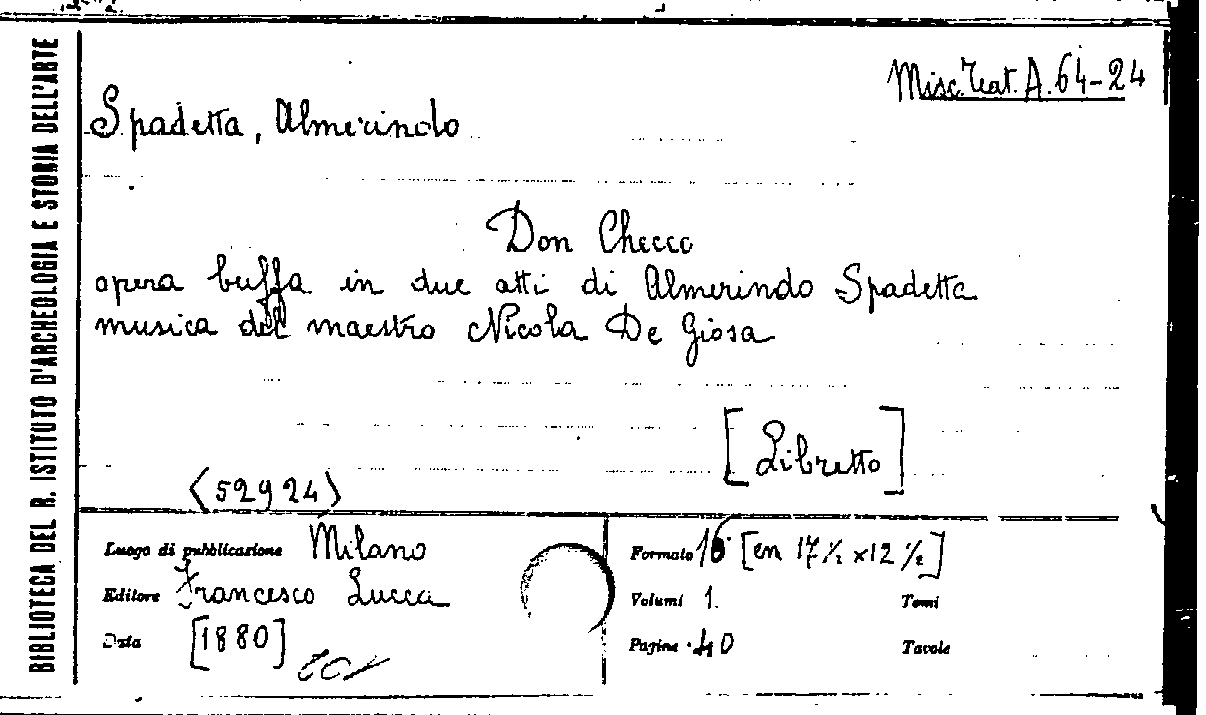 BIBLIOTECA DEL R. ISTITUTO D'ARCHEOLOGIA E STORIA DELL'ARTE
Misc. Teat. A. 64-24
Spadetta, Almerindo
Don Checco
opera buffa in due atti di Almerindo Spadetta
musica del maestro Nicola De Giosa
[Libretto]
(52924)
Luogo di pubblicazione Milano
Editore Francesco Lucca
Data [1880]
Formato 16° [cm 17 ½ x 12 ½]
Volumi 1. Tomi
Pagine 40 Tavole